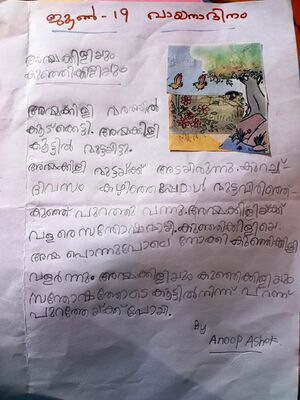 ജൂൺ - 19 വായനാദിനം
അമ്മക്കിളിയും
കുഞ്ഞിക്കിളിയും
അമ്മക്കിളി മരത്തിൽ
കൂട് കെട്ടി. അമ്മക്കിളി
കൂട്ടിൽ മുട്ടയിട്ടു.
അമ്മക്കിളി മുട്ടയ്ക്ക് അടയിരുന്നു. കുറച്ച്
ദിവസം കഴിഞ്ഞപ്പോൾ മുട്ടവിരിഞ്ഞ്
കുഞ്ഞ് പുറത്തു വന്നു. അമ്മക്കിളിയ്ക്ക്
വളരെ സന്തോഷമായി. കുഞ്ഞിക്കിളിയെ
അമ്മ പൊന്നുപോലെ നോക്കി കുഞ്ഞിക്കിളി
വളർന്നു. അമ്മക്കിളിയും കുഞ്ഞിക്കിളിയും
സന്തോഷത്തോടെ കൂട്ടിൽ നിന്ന് പറന്ന്
പുറത്തേയ്ക്ക് പോയി.
By
Anoop Ashok